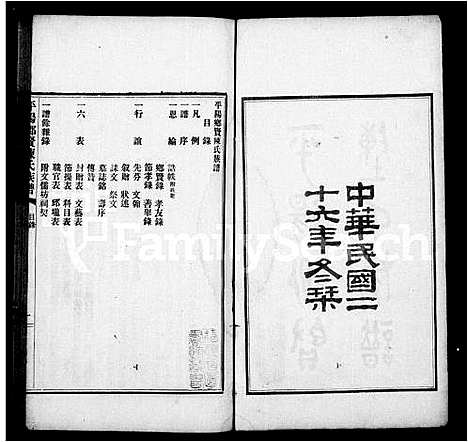 中華民國二
十六年冬栞
平陽鄉賢陳氏族譜
目錄
一凡例
一譜序
一恩綸
誥敕
一行誼
鄉賢錄 孝友錄
節孝錄 善舉錄
先芬 文翰
叙財 狀述
誄文 祭文
墓誌銘 壽序
傳誌
一六表
封贈表 文藝表
節操表 科目表
職官表 邱壠表
一譜餘雜錄
附文儒坊祠契
平陽鄉賢陳氏族譜 目錄 一
FamilySearch